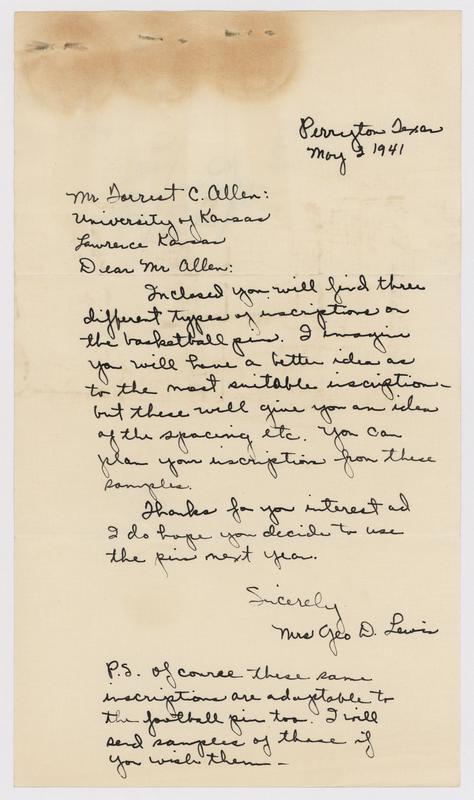 Perryton Texas
May 2 1941
Mr Forrest C. Allen:
University of Kansas
Lawrence Kansas
Dear Mr Allen:
Inclosed you will find three
different types of inscriptions on
the basketball pin. I imagine
you will have a better idea as
to the most suitable inscription -
but these will give you an idea
of the spacing etc. You can
plan your inscription from these
samples.
Thanks for you interest ad
I do hope you decide to use
the pin next year.
Sincerely
Mrs Geo D. Lewis
P.S. Of course these same
inscriptions are adaptable to
the football pin too. I will
send samples of these if
you wish them -